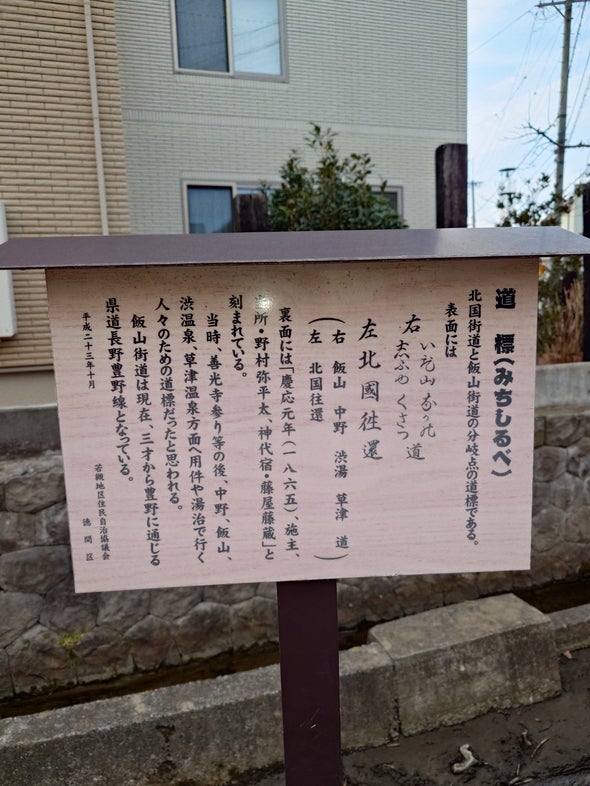 道標(みちしるべ)
北国街道と飯山街道の分岐点の道標である。
表面には
右 いゐ山 なかの
志ふゆ くさつ 道
左北國徃還
(右 飯山 中野 渋湯 草津 道)
(左 北国往還)
裏面には「慶応元年(一八六五)、施主、
所・野村弥平太、神代宿・藤屋藤蔵」と
刻まれている。
当時、善光寺参り等の後、中野、飯山、
渋温泉、草津温泉方面へ用件や湯治で行く
人々のための道標だったと思われる。
飯山街道は現在、三才から豊野に通じる
県道長野豊野線となっている。
平成二十三年十月
若槻地区住民自治協議会
徳間区